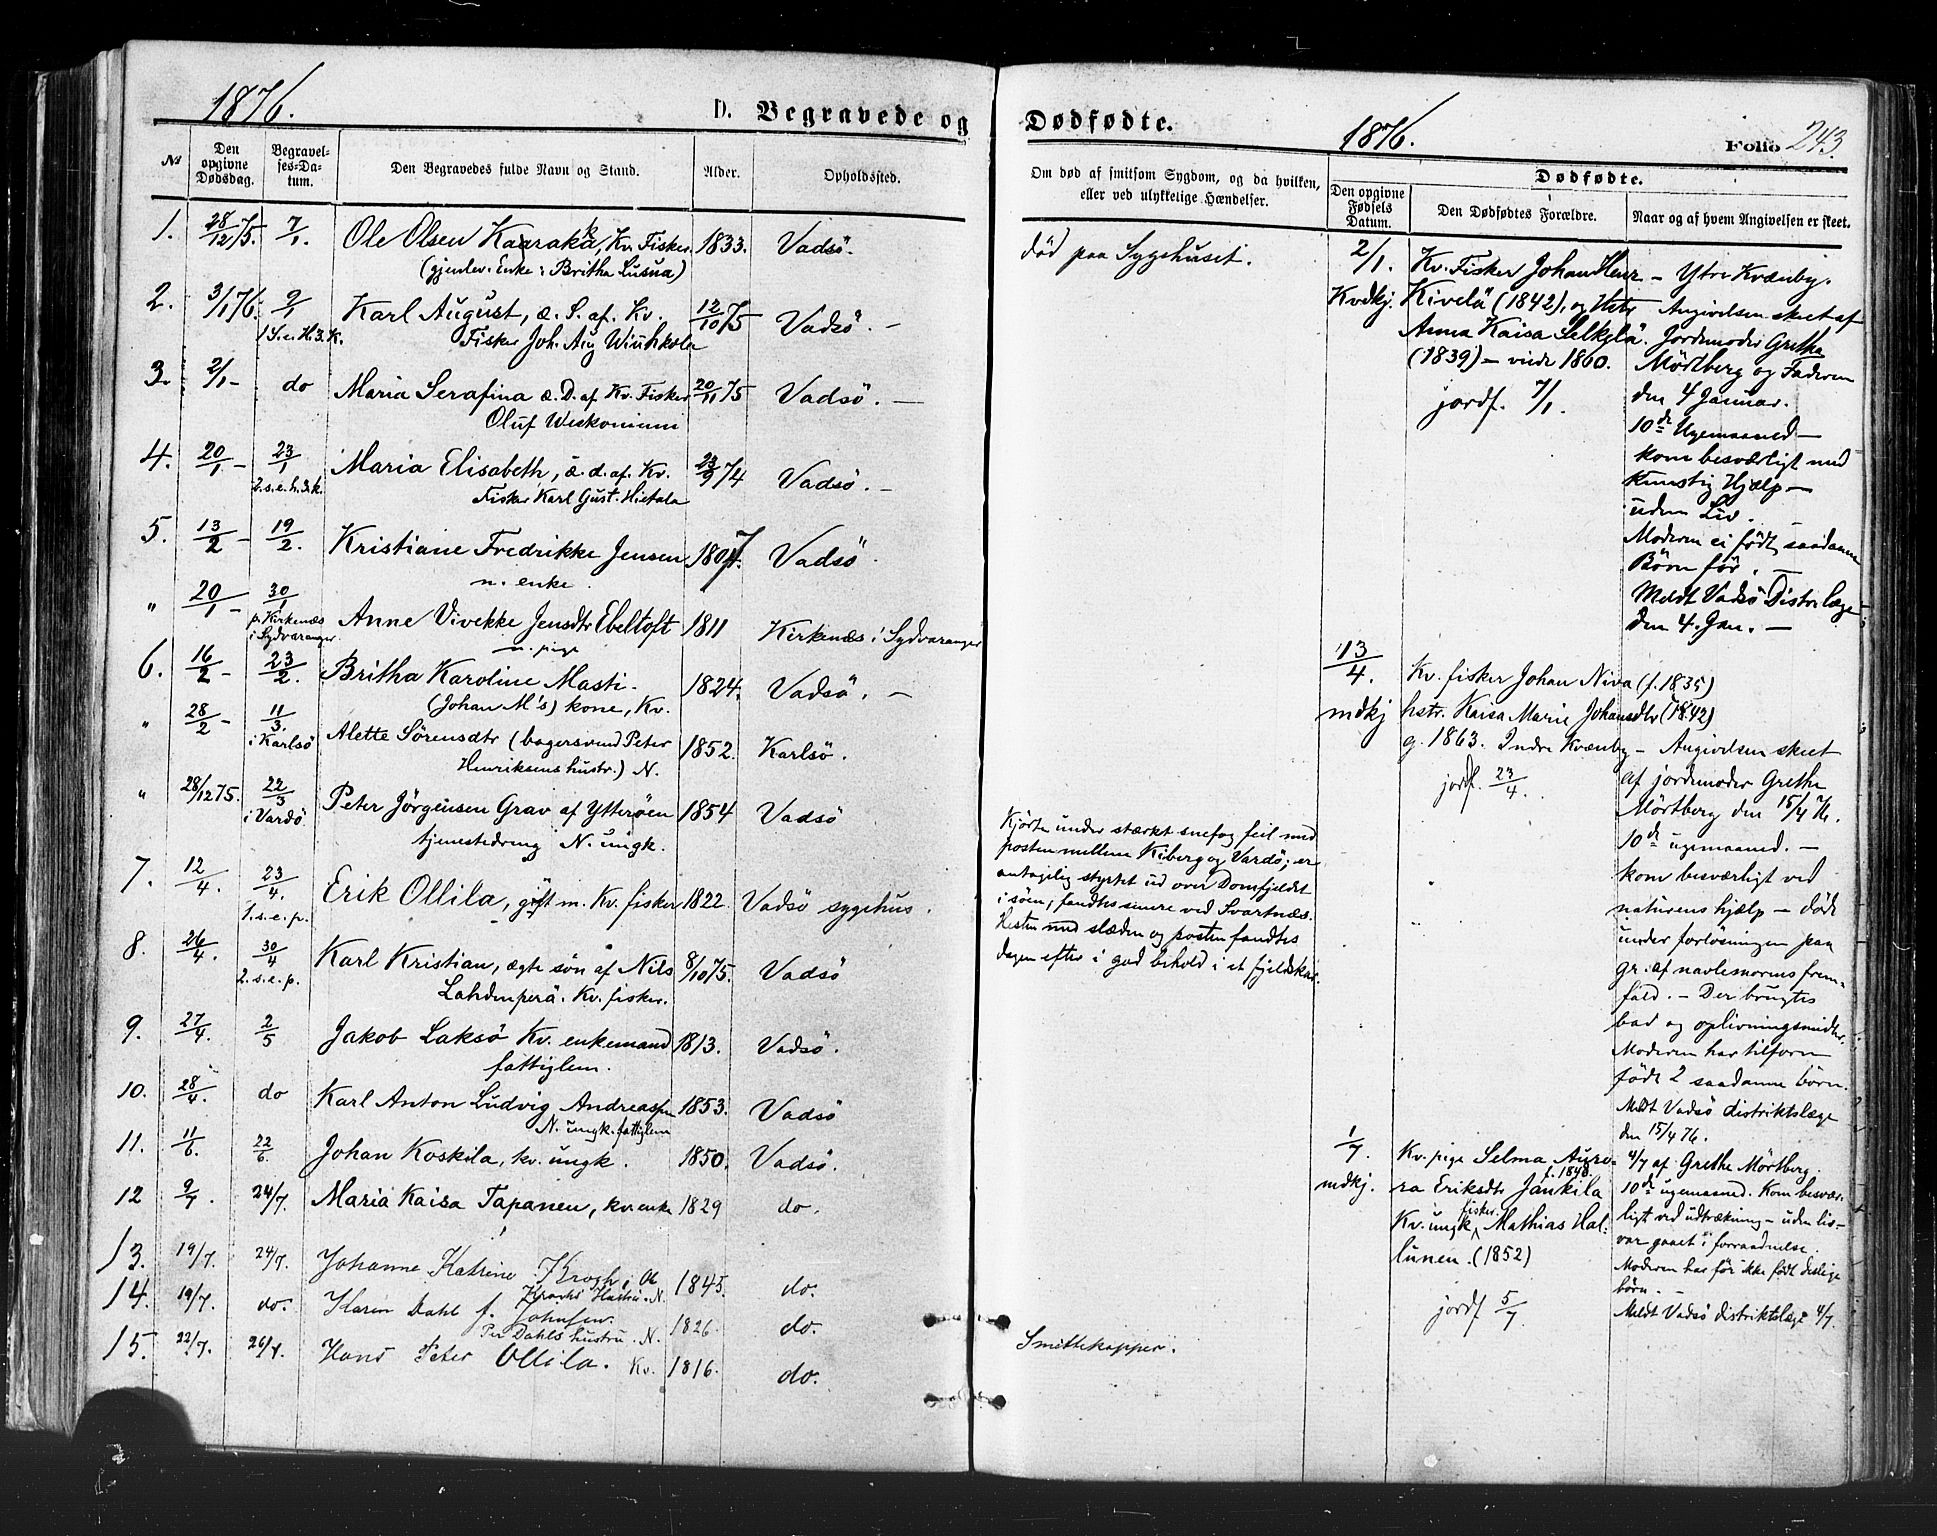 1876.
D. Begravede og
№
Den opgivne Dødsdag.
Begravelses-Datum.
Den Begravedes fulde Navn og Stand.
Alder.
Opholdssted.
1. 28/12 75. 7/1 Ole Olsen Kaaraka, Kv. Fisker 1833. Vadsö.
(gjenlev. Enke: Britha Lusua)
2. 3/1 76. 9/1 Karl August, æ. S. af Kv. 12/10 75 Vadsö. –
1 S. e. H. 3 K. Fisker Joh. Aug
3. 2/1 – do Maria Serafina æ. D. af Kv. Fisker 20/11 75 Vadsö. –
Oluf
4. 20/1 – 23/1 Maria Elisabeth, æ. d. af Kv. 23/9 74 Vadsö. –
2. s. e. h. 3 k. Fisker Karl Gust. Hietala
5. 13/2 – 19/2. Kristiane Fredrikke Jensen 1807. Vadsö.
n. enke.
" 20/1 – 30/1 Anne Vivekke Jensdtr Ebeltoft 1811 Kirkenæs i Sydvaranger
p. Kirkenæs i Sydvaranger n. pige
6. 16/2 – 23/2. Britha Karoline Masti. 1824. Vadsö. –
(Johan M's) kone, Kv.
" 28/2 – 11/3. Alette Sörensdtr (bagersvend Peter 1852. Karlsö.
i Karlsö Henriksens hustr.) N.
" 28/12 75. 22/3 Peter Jörgensen Grav af Ytteröen 1854 Vadsö
i Vardö tjenestedreng N. ungk.
7. 12/4. 23/4. Erik Ollila, gift m. Kv. fisker 1822. Vadsö sygehus.
1. s. e. p.
8. 26/4. 30/4 Karl Kristian, ægte sön af Nils 8/10 75. Vadsö
2. s. e. p. Lahdenperä. Kv. fisker.
9. 27/4. 2/5 Jakob Laksö Kv. enkemand 1813. Vadsö.
fattiglem.
10. 28/4. do Karl Anton Ludvig Andreassen 1853. Vadsö
N. ungk. fattiglem
11. 11/6. 22/6. Johan Koskela, kv. ungk. 1850. Vadsö.
12 9/7. 24/7. Maria Kaisa Tapanen, kv. enke 1829 do.
13. 19/7. 24/7. Johanne Katrine Krogh, Ol 1845. do.
Kroghs Hustru. N.
14. 19/7. do. Karen Dahl f. Johnsen. 1826. do.
Per Dahls hustru. N.
15. 22/7. 26/7. Hans Peter Ollila. Kv. 1816. do.
Dødfødte.
1876.
Folio 243.
Om død af smitsom Sygdom, og da hvilken,
eller ved ulykkelige Hændelser.
Dødfødte.
Den opgivne Fødsels Datum.
Den Dødfødtes Forældre.
Naar og af hvem Angivelsen er skeet.
död paa Sygehuset.
Kjörte under stærkt snefog feil med
posten mellem Kiberg og Vardö; er
antagelig styrtet ud over Domfjeldet
i söen; fandtes senere ved Svartnæs.
Hesten med slæden og posten fandtes
dagen efter i god behold i et fjeldskar.
Smittekopper.
2/1.
Kvdkj.
Kv. Fisker Johan Henr
Kivelä (1842), og Hstr
Anna Kaisa Selkylä.
(1839) – viede 1860.
jordf. 7/1.
– Ytre Kvænby.
Angivelsen skeet af
Jordemoder Grethe
Mörtberg og Faderen
den 4 Januar.
10de Ugemaaned –
kom besværligt med
Kunstig Hjælp –
uden Liv.
Moderen ei födt saadanne
Börn för. –
Meldt Vadsö Distr. læge
den 4. Jan. –
13/4.
mdkj
Kv. fisker Johan Niva (f. 1835)
hstr. Kaisa Marie Johansdtr (1842)
g. 1863. Indre Kvænby – Angivelsen skeet
jordf. 23/4.
af jordemoder Grethe
Mörtberg den 15/4 76.
10de ugemaaned. –
kom besværligt ved
naturens hjælp – döde
under forlösningen paa
gr. af navlesnorens frem-
fald. – Der brugtes
bad og oplivningsmidter.
Moderen har tilforn
födt 2 saadanne börn.
Meldt Vadsö distriktslæge
den 15/4 76.
1/7.
mdkj.
Kv. pige Selma Auro-
ra Eriksdtr Jankila f. 1848.
Kv. ungk. fisker Mathias Hal-
lunen. (1852)
jordf 5/7
4/7 af Grethe Mörtberg.
10de ugemaaned. Kom besvær-
ligt ved udtrækning – uden liv –
var gaaet i forraadnelse.
Moderen har för ikke födt deslige
börn. –
Meldt Vadsö distriktslæge 4/7.